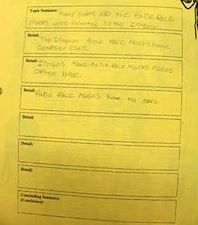 Topic Sentence: Many years ago the false face
masks were invented by the Iroquois.
Detail: The Iroquois false face masks have
Detail: Iroquois make false face masks noses
often large.
Detail: false face masks have no ears.
Detail:
Detail:
Detail:
Detail:
Concluding Sentence:
(Conclusion)